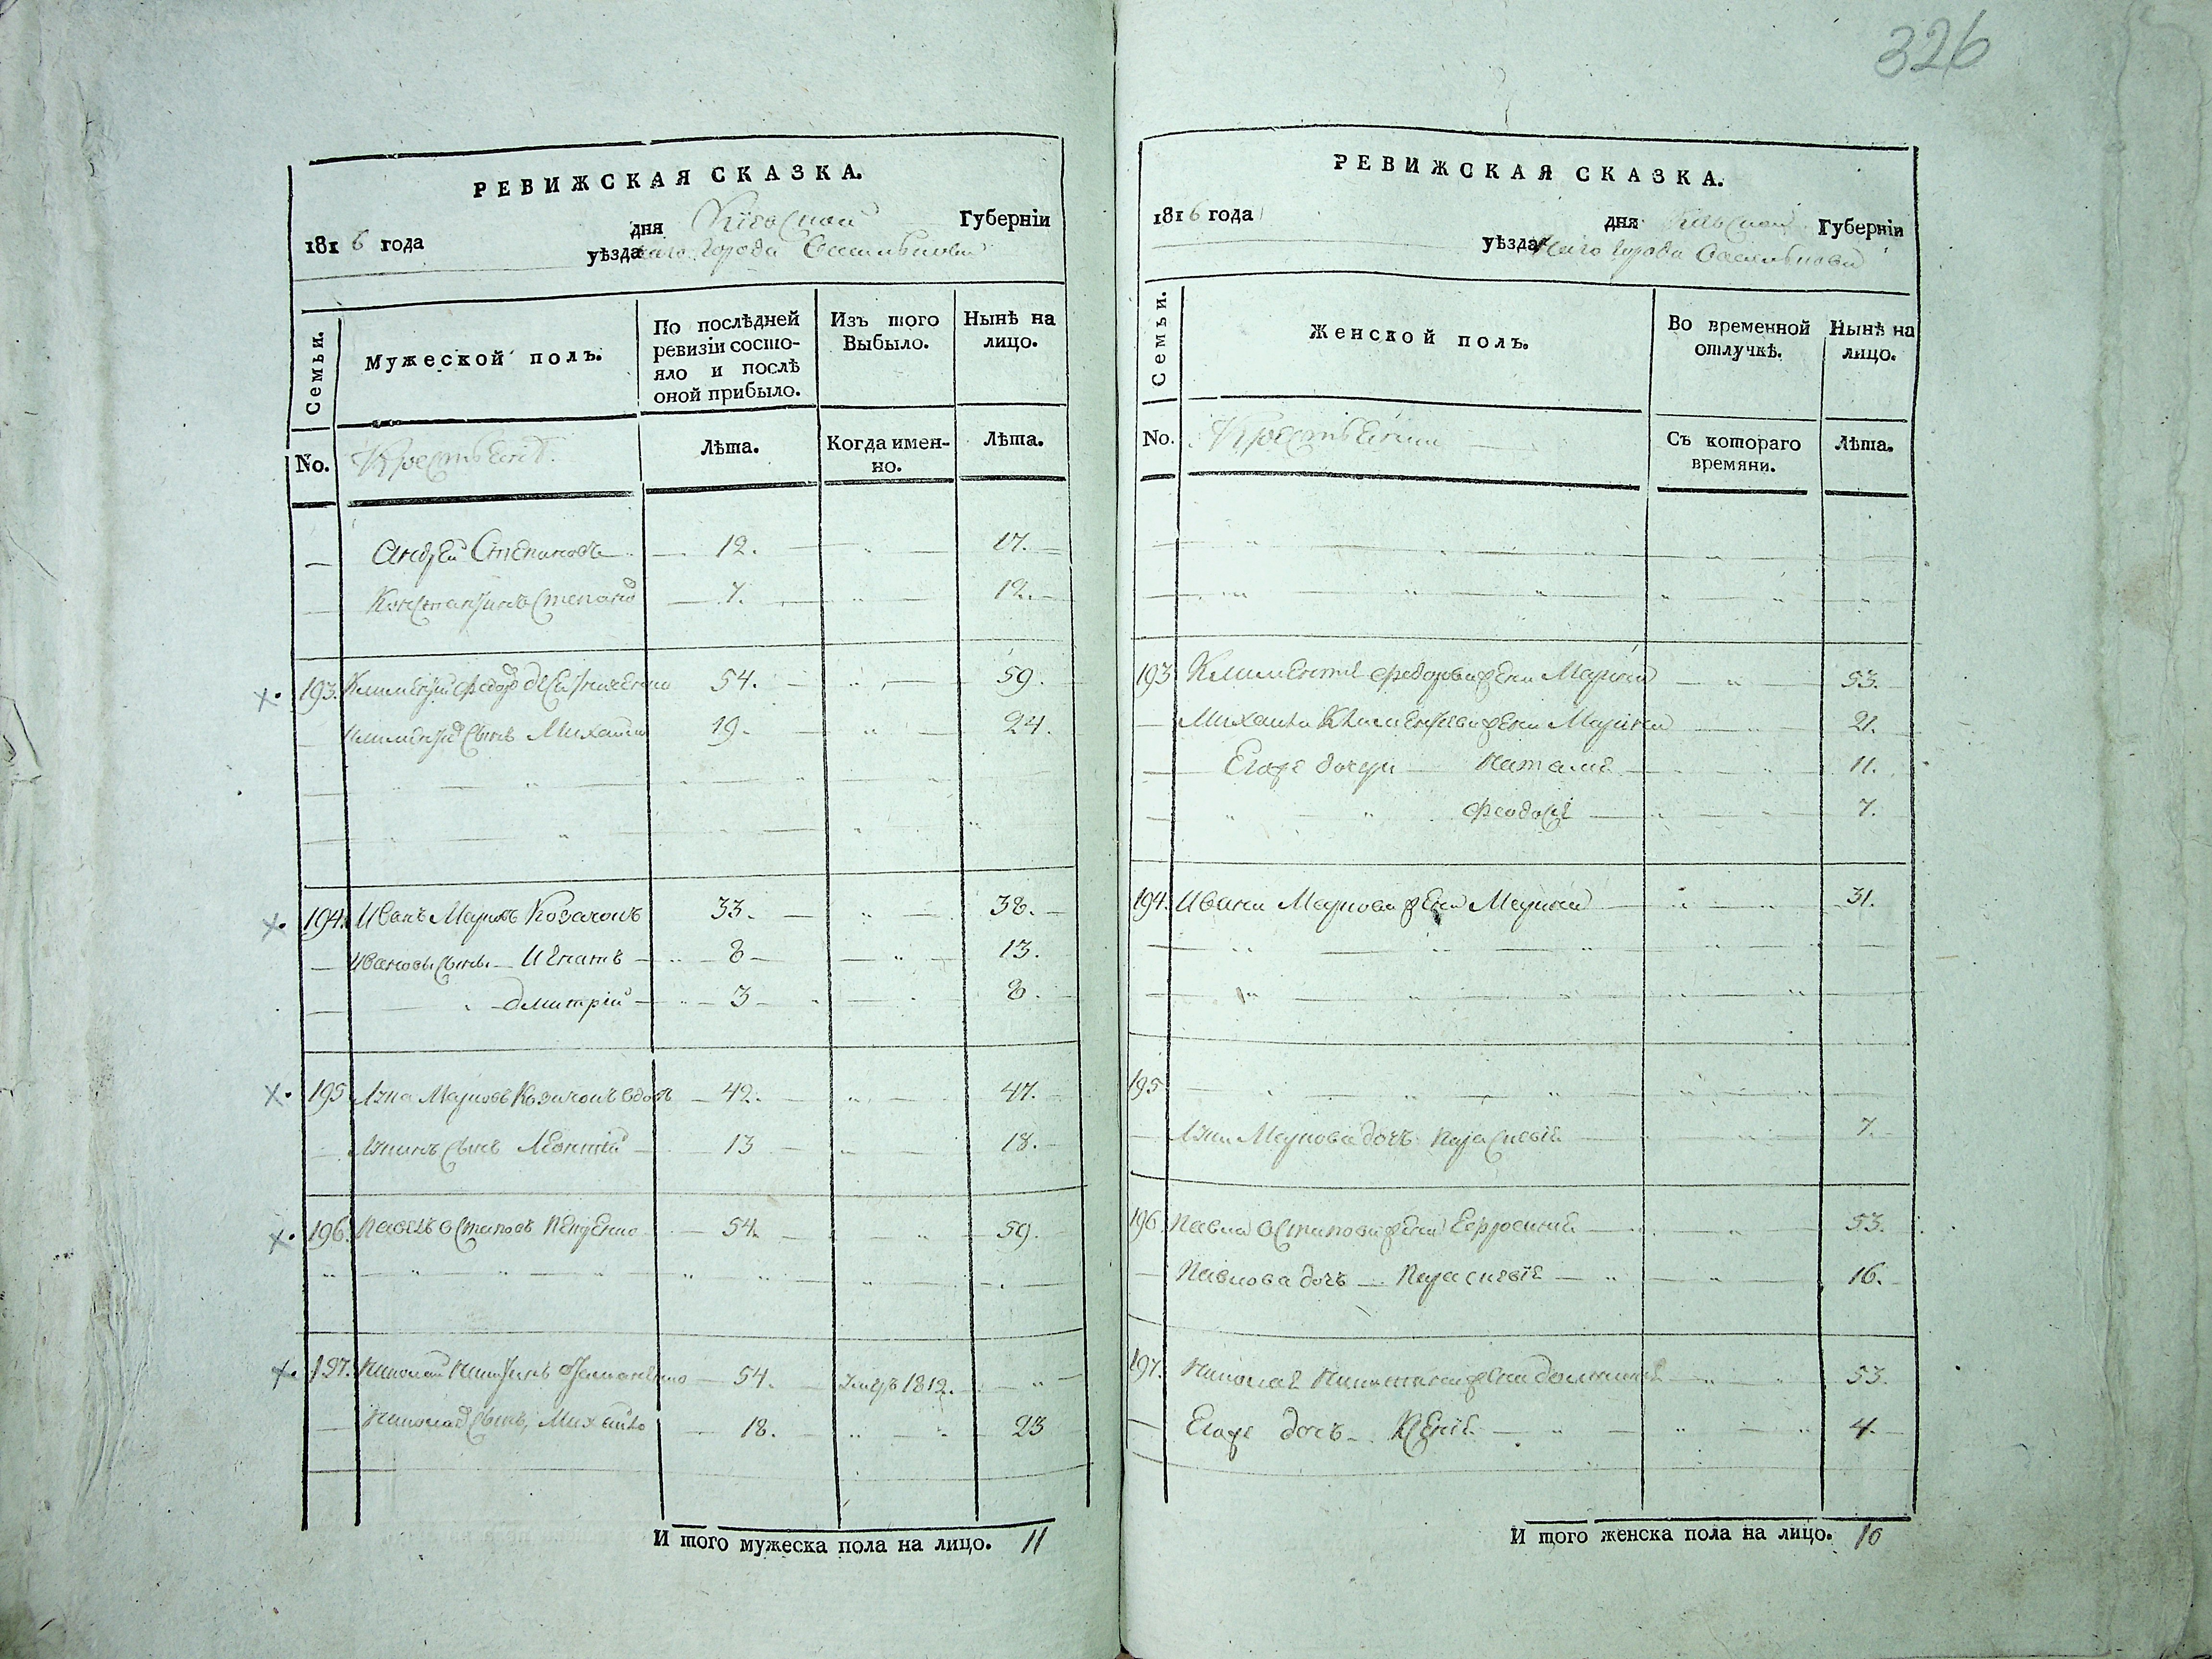 326
РЕВИЖСКАЯ СКАЗКА.
1816 года дня Кіевской Губерніи
уѣзда города Василькова
Семьи.
Мужеской полъ.
По послѣдней ревизіи состояло и послѣ оной прибыло.
Изъ того Выбыло.
Нынѣ на лицо.
No.
Лѣта.
Когда именно.
Лѣта.
Андрей Степановъ 12. 17.
Константинъ Степановъ 7. 12.
193. Климентій Федоровъ 54. 59.
сынъ Михайло 19. 24.
194. Иванъ Марковъ Козачокъ 33. 38.
Ивановы сыны Игнатъ 8 13.
Дмитрій 3 8.
195 Лука Марковъ Козачокъ вдовъ 42. 47.
Лукинъ сынъ Леонтій 13 18.
196. Павелъ Остаповъ 54. 59.
197. Николай Никитинъ 54. умеръ 1812.
сынъ, Михайло 18. 23
И того мужеска пола на лицо. 11
РЕВИЖСКАЯ СКАЗКА.
1816 года дня Кіевской Губерніи
уѣзда города Василькова
Семьи.
Женской полъ.
Во временной отлучкѣ.
Нынѣ на лицо.
No.
Съ котораго времяни.
Лѣта.
193 Федорова жена Марія 53.
Михаила жена 21.
Егоже дочери Наталія 11.
Феодосія 7.
194. Ивана Маркова жена Марина 31.
195
Луки Маркова дочь Параскевія 7.
196. Павла Остапова жена Ефросинія 53.
Павлова дочь Параскевія 16.
197. Николая Никитина жена 53.
Егоже дочь Ксенія 4.
И того женска пола на лицо. 10